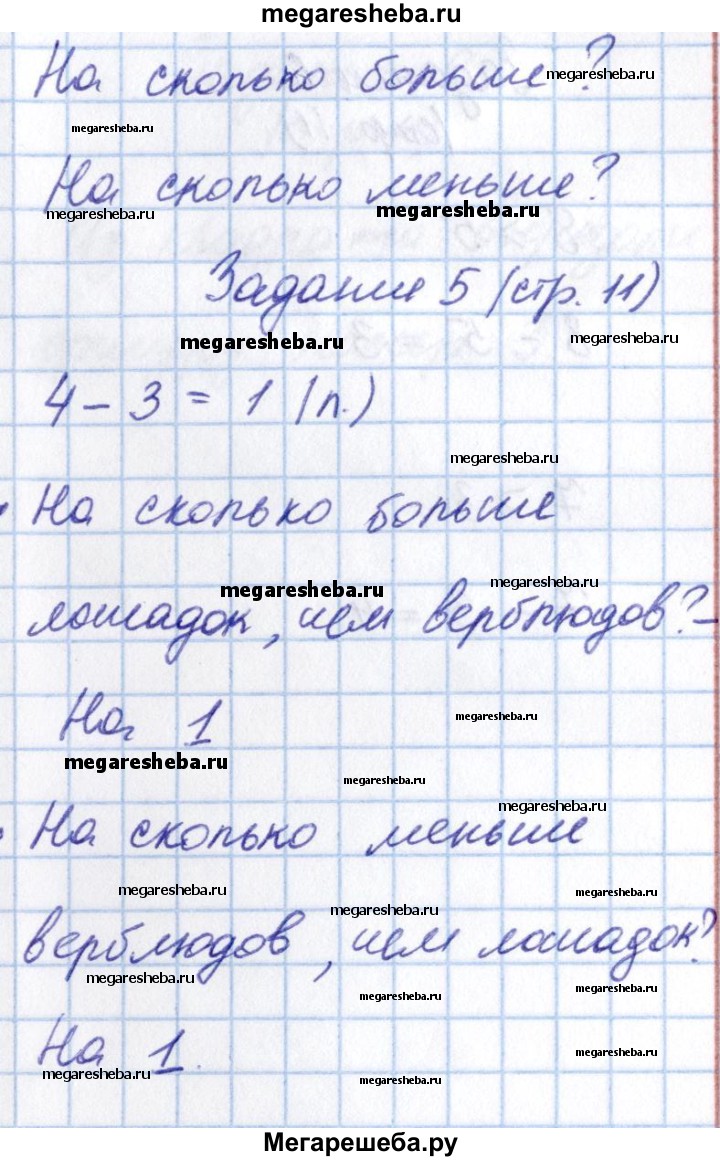 megaresheba.ru
На сколько больше?
megaresheba.ru
megaresheba.ru
На сколько меньше?
megaresheba.ru
megaresheba.ru
Задание 5 (стр. 11)
megaresheba.ru
megaresheba.ru
4 - 3 = 1 (л.)
megaresheba.ru
На сколько больше
megaresheba.ru
megaresheba.ru
лошадок, чем верблюдов? -
На 1
megaresheba.ru
megaresheba.ru
megaresheba.ru
megaresheba.ru
На сколько меньше
megaresheba.ru
megaresheba.ru
megaresheba.ru
верблюдов, чем лошадок?
megaresheba.ru
megaresheba.ru
megaresheba.ru
На 1.
megaresheba.ru
megaresheba.ru
megaresheba.ru
Мегарешеба.ру